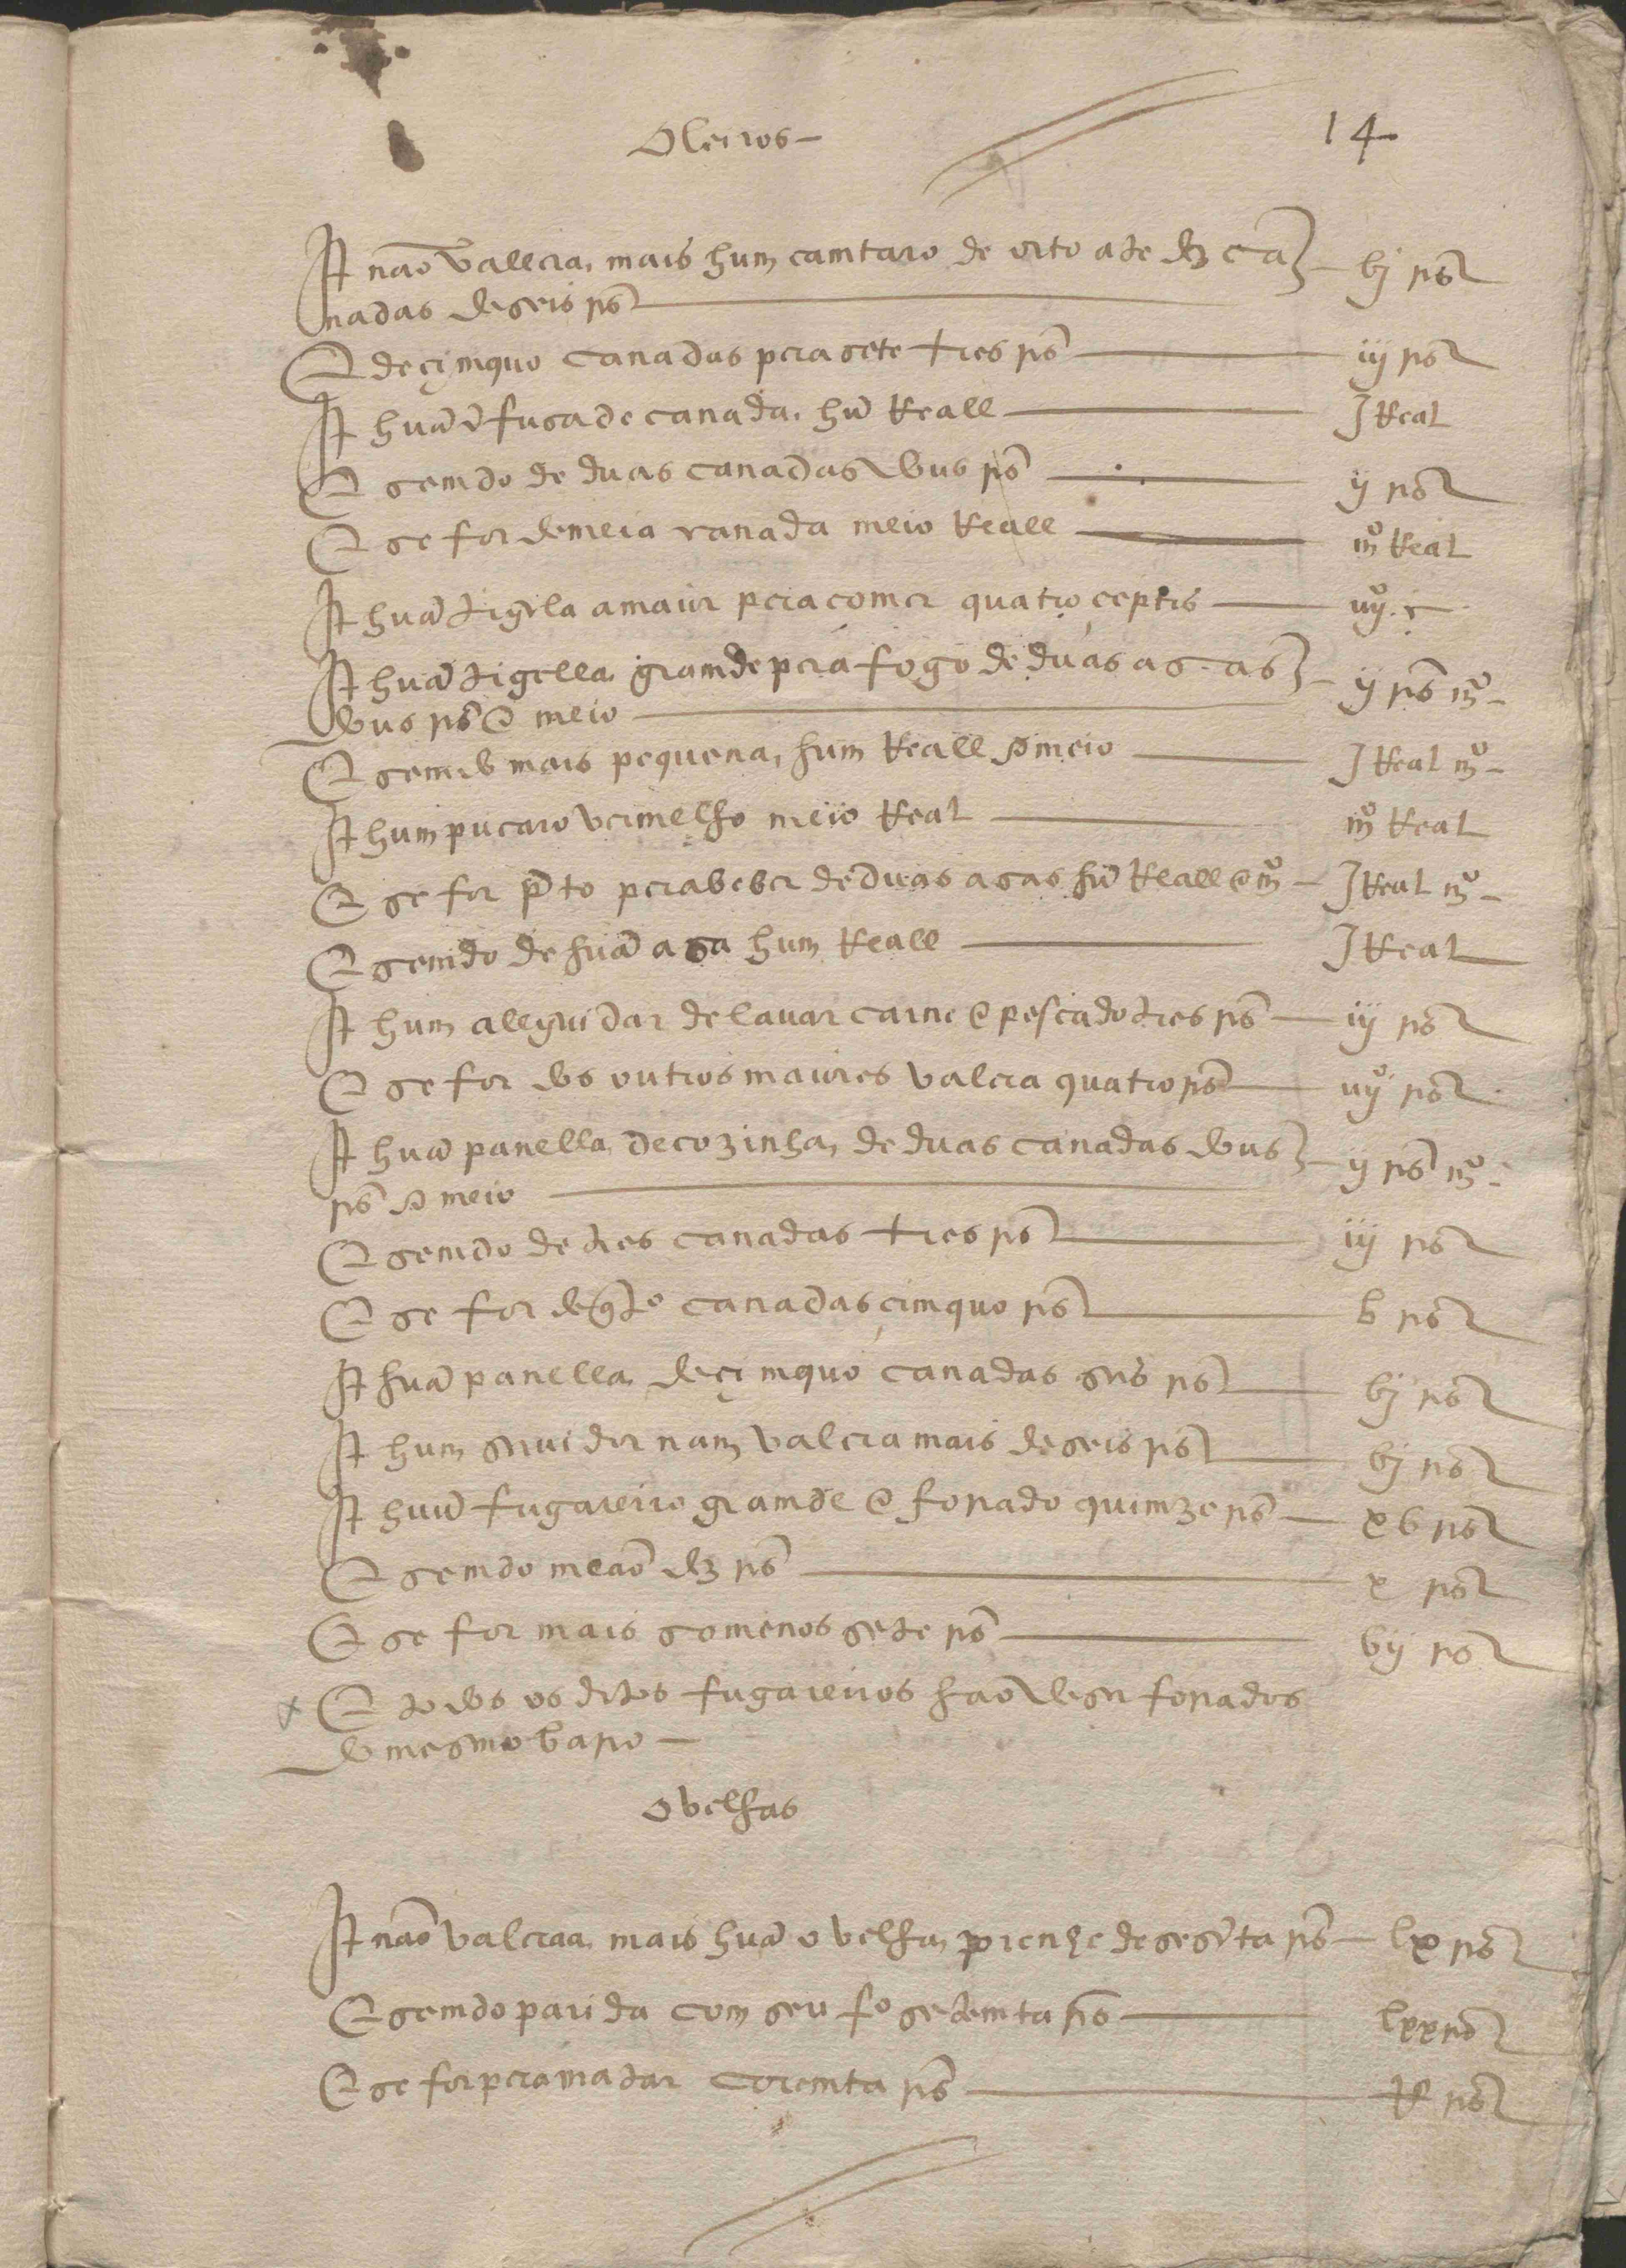 Oleiros
14
It não vallera mais hum camtaro de oito ate dz ca bj rs
nadas de seis rs
E de çimquo canadas pera sete tres rs iij rs
It huã Jfusa de canada hũ Reall J Real
E semdo de duas canadas dous rs ij rs
E se for de meia canada meio Reall mº Real
It huã tigela a maior pera comer quatro ceptis iiijº c
It huã tigella gramde pera fogo de duas asas ij rs mº
dous rs e meio
E semdo mais pequena hum Reall e meio J Real mº
It hum pucaro vermelho meio Real mº Real
E se for p̃to pera beber de duas asas hũ Reall e mº J Real mº
E semdo de huã asa hum Reall J Real
It hum alleguidar de lauar carne e pescado tres rs iij rs
E se for dos outros maiores valera quatro rs iiijº rs
It huã panella de cozinha de duas canadas dous ij rs mº
rs e meio
E semdo de tres canadas tres rs iij rs
E se for de qtº canadas çimquo rs b rs
It huã panella de çimquo canadas seis rs bj rs
It hum seruidor nam valera mais de seis rs bj rs
It huũ fugareiro gramde e forrado quimze rs xb rs
E semdo meaõ dz rs x rs
E se for mais somenos sete rs bij rs
E todos os ditos fugareiros haõ de ser forrados
do mesmo barro
ovelhas
It não valeraa mais huã ovelha prenhe de sesẽta rs lx rs
E semdo parida com seu fº setemta rs lxx rs
E se for pera matar coremta rs R rs